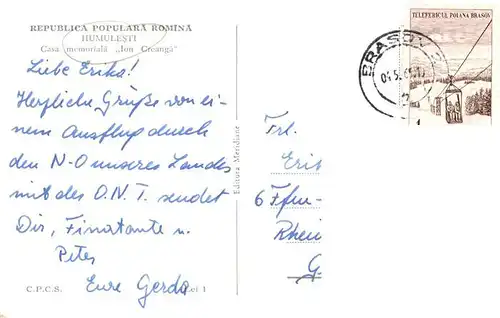 REPUBLICA POPULARĂ ROMÎNĂ
HUMULEȘTI
Casa memorială „Ion Creangă"
Liebe Erika!
Herzliche Grüße von ei-
nem Ausflug durch
den N-O unseres Landes
mit des O.N.T. sendet
Dir, Finatante u.
Peter
Eure Gerda
C.P.C.S.
Lei 1
Editura Meridiane
TELEFERICUL POIANA BRAȘOV
BRASOV
Frl.
Erik
6 Ffm-
Rhein
G